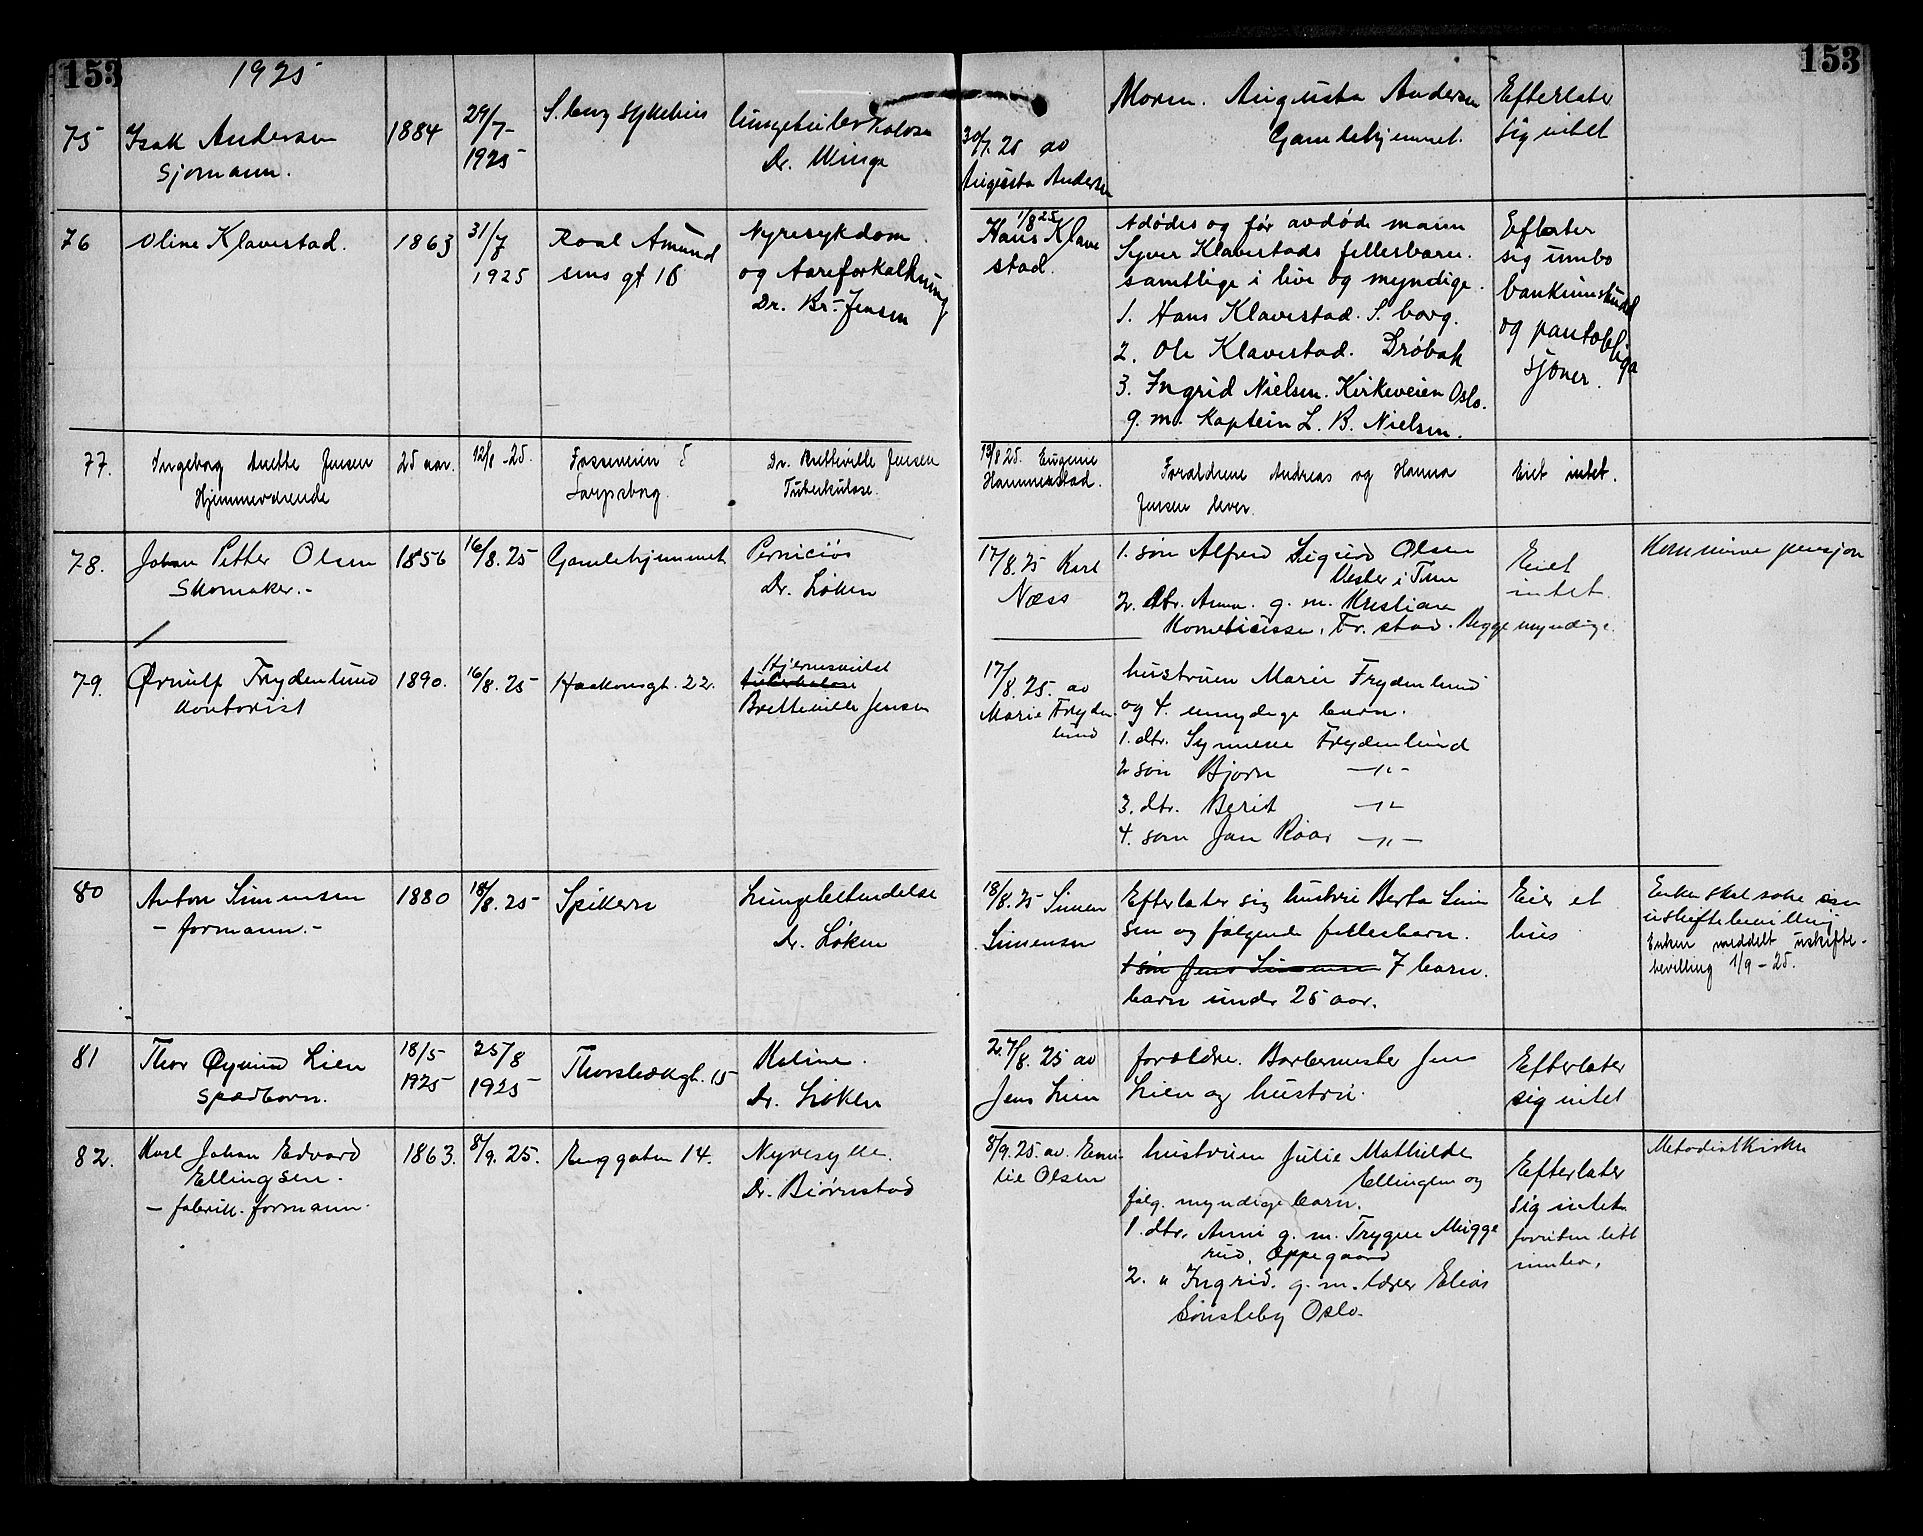 153
1925
153
75
Isak Andersen
Sjømann.
1884
29/7-
1925
S.borg sykehus
lungetuberkulose
Dr. Winge
30/7. 25 av
Augusta Andersen
Moren. Augusta Andersen
Gamlehjemmet.
Efterlater
sig intet
76
Oline Klavestad.
1863
31/7
1925
Roal Amund
sens gt 16
Nyresykdom
og Aareforkalkning
Dr. Br. Jensen
1/8 25
Hans Klave
stad.
Avdødes og før avdøde mann
Syver Klavestads fellesbarn.
samtlige i live og myndige.
1. Hans Klavestad. S.borg.
2. Ole Klavestad. Drøbak
3. Ingrid Nielsen. Kirkeveien Oslo.
g. m. Kaptein L. B. Nielsen.
Efterlater
sig innbo
bankinnskudd
og pantobliga
sjoner.
77.
Ingeborg Anette Jensen
Hjemmeværende
25 aar.
12/8-25.
Fosseveien 5
Sarpsborg.
Dr. Bretteville Jensen
Tuberkulose.
13/8 25. Eugenie
Hammerstad.
Forældrene Andreas og Hanna
Jensen lever.
Eiet intet.
78.
Johan Petter Olsen
Skomaker.-
1856
16/8.25
Gamlehjemmet
Perniciøs
Dr. Løken
17/8.25 Karl
Næss
1. søn Alfred Sigurd Olsen
Vesler i Tune
2. dtr. Anna. g. m. Kristian
Fr.stad. Begge myndige.
Eiet
intet.
Kommune pensjon
79.
Ørnulf Frydenlund
Kontorist
1890.
16/8.25
Haakonsgt. 22.
tuberkulose
Bretteville Jensen
17/8.25. av
Marie Fryden
lund
hustruen Marie Frydenlund
og 4. umyndige barn.
1. dtr. Synnøve Frydenlund
2 søn Bjørn -"-
3. dtr. Berit -"-
4. søn Jan Roar -"-
80
Anton Simensen
- formann.-
1880
18/8.25
Spikern
Lungebetendelse
Dr. Løken
18/8.25 Simen
Simensen
Efterlater sig hustru Berta Simen
sen og følgende fellesbarn.
1 søn Jens Simensen 7 barn.
barn under 25 aar.
Eier et
hus
Enken skal søke om
uskiftebevilling
Enken meddelt uskifte-
bevilling 1/9-25.
81
Thor Øyvind Lien
Spædbarn.
18/5
1925
25/8
1925
Thorsbækgt. 15
Meline.
Dr. Løken
27/8. 25 av
Jens Lien
forældre. Barbermester Jens
Lien og hustru.
Efterlater
sig intet
82.
Karl Johan Edvard
Ellingsen.
- fabrikk. formann.
1863.
8/9.25.
Enggaten 14.
Nyresyke.
Dr. Bjørnstad
8/9.25. av. Emi
lie Olsen
hustruen Julie Mathilde
Ellingsen og
følg. myndige barn.
1. dtr. Anni g. m. Trygve Mugge
rud, Oppegaard
2. " Ingrid. g. m. lærer Elias
Sønsteby Oslo.
Efterlater
sig intet
foruten litt
innbo.
Metodistkirken